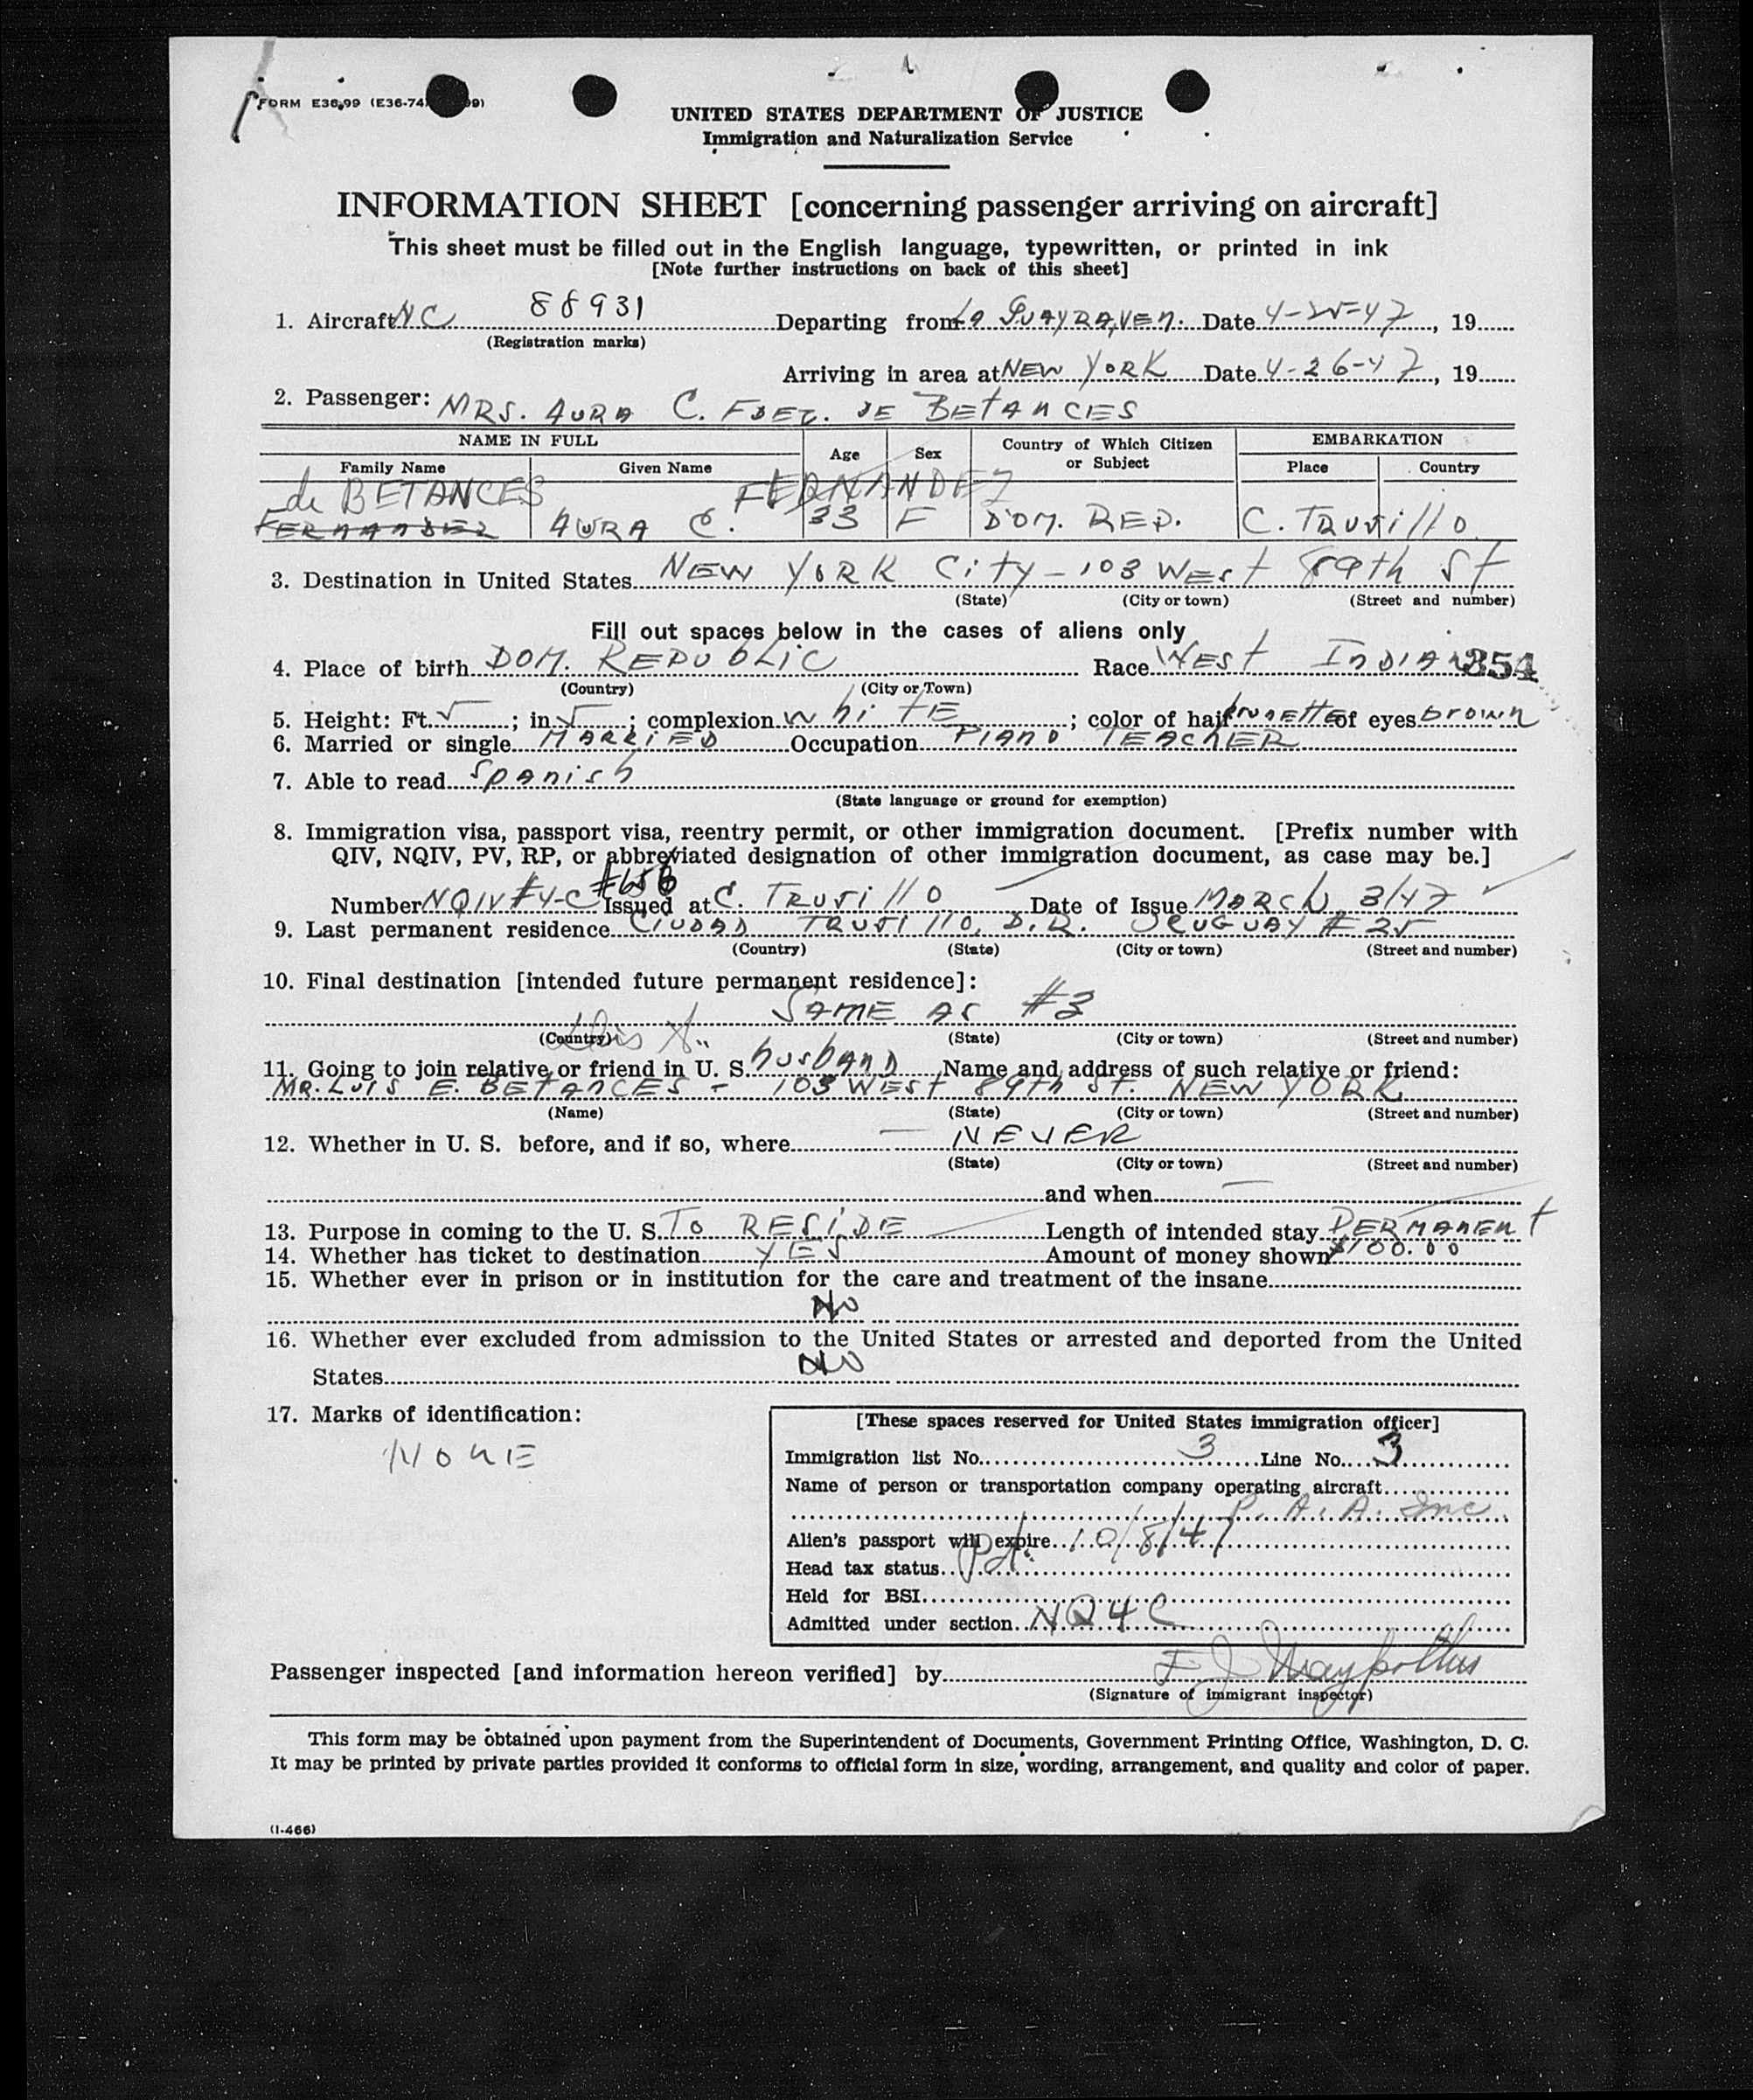 FORM E36-99 (E36-74
UNITED STATES DEPARTMENT OF JUSTICE
Immigration and Naturalization Service
INFORMATION SHEET [concerning passenger arriving on aircraft]
This sheet must be filled out in the English language, typewritten, or printed in ink
[Note further instructions on back of this sheet]
1. Aircraft NC 88931 Departing from La Guayra, Ven. Date 4-25-47, 19
(Registration marks)
Arriving in area at NEW YORK Date 4-26-47, 19
2. Passenger: MRS. AURA C. FDEZ. DE BETANCES
NAME IN FULL Age Sex Country of Which Citizen or Subject EMBARKATION
Family Name Given Name Place Country
de BETANCES FERNANDEZ
FERNANDEZ AURA C. 33 F DOM. REP. C. TRUJILLO
3. Destination in United States NEW YORK City - 103 WEST 89th St
(State) (City or town) (Street and number)
Fill out spaces below in the cases of aliens only
4. Place of birth DOM. REPUBLIC Race WEST INDIAN 354
(Country) (City or Town)
5. Height: Ft. 5; in 5; complexion white; color of hair brunette of eyes brown
6. Married or single MARRIED Occupation PIANO TEACHER
7. Able to read Spanish
(State language or ground for exemption)
8. Immigration visa, passport visa, reentry permit, or other immigration document. [Prefix number with
QIV, NQIV, PV, RP, or abbreviated designation of other immigration document, as case may be.]
Number NQIV #4-C #656 Issued at C. TRUJILLO Date of Issue MARCH 3/47
9. Last permanent residence CIUDAD TRUJILLO, D.R. URUGUAY # 25
(Country) (State) (City or town) (Street and number)
10. Final destination [intended future permanent residence]:
SAME AS #3
(Country) (State) (City or town) (Street and number)
11. Going to join relative or friend in U. S. husband Name and address of such relative or friend:
MR. LUIS E. BETANCES - 103 WEST 89th ST. NEW YORK
(Name) (State) (City or town) (Street and number)
12. Whether in U. S. before, and if so, where NEVER
(State) (City or town) (Street and number)
and when
13. Purpose in coming to the U. S. TO RESIDE Length of intended stay PERMANENT
14. Whether has ticket to destination YES Amount of money shown $100.00
15. Whether ever in prison or in institution for the care and treatment of the insane
No
16. Whether ever excluded from admission to the United States or arrested and deported from the United
States No
17. Marks of identification:
NONE
[These spaces reserved for United States immigration officer]
Immigration list No. 3 Line No. 3
Name of person or transportation company operating aircraft
P. A. A. Inc.
Alien's passport will expire 10/8/47
Head tax status Pd.
Held for BSI
Admitted under section NQ4C
Passenger inspected [and information hereon verified] by
(Signature of immigrant inspector)
This form may be obtained upon payment from the Superintendent of Documents, Government Printing Office, Washington, D. C.
It may be printed by private parties provided it conforms to official form in size, wording, arrangement, and quality and color of paper.
(I-466)